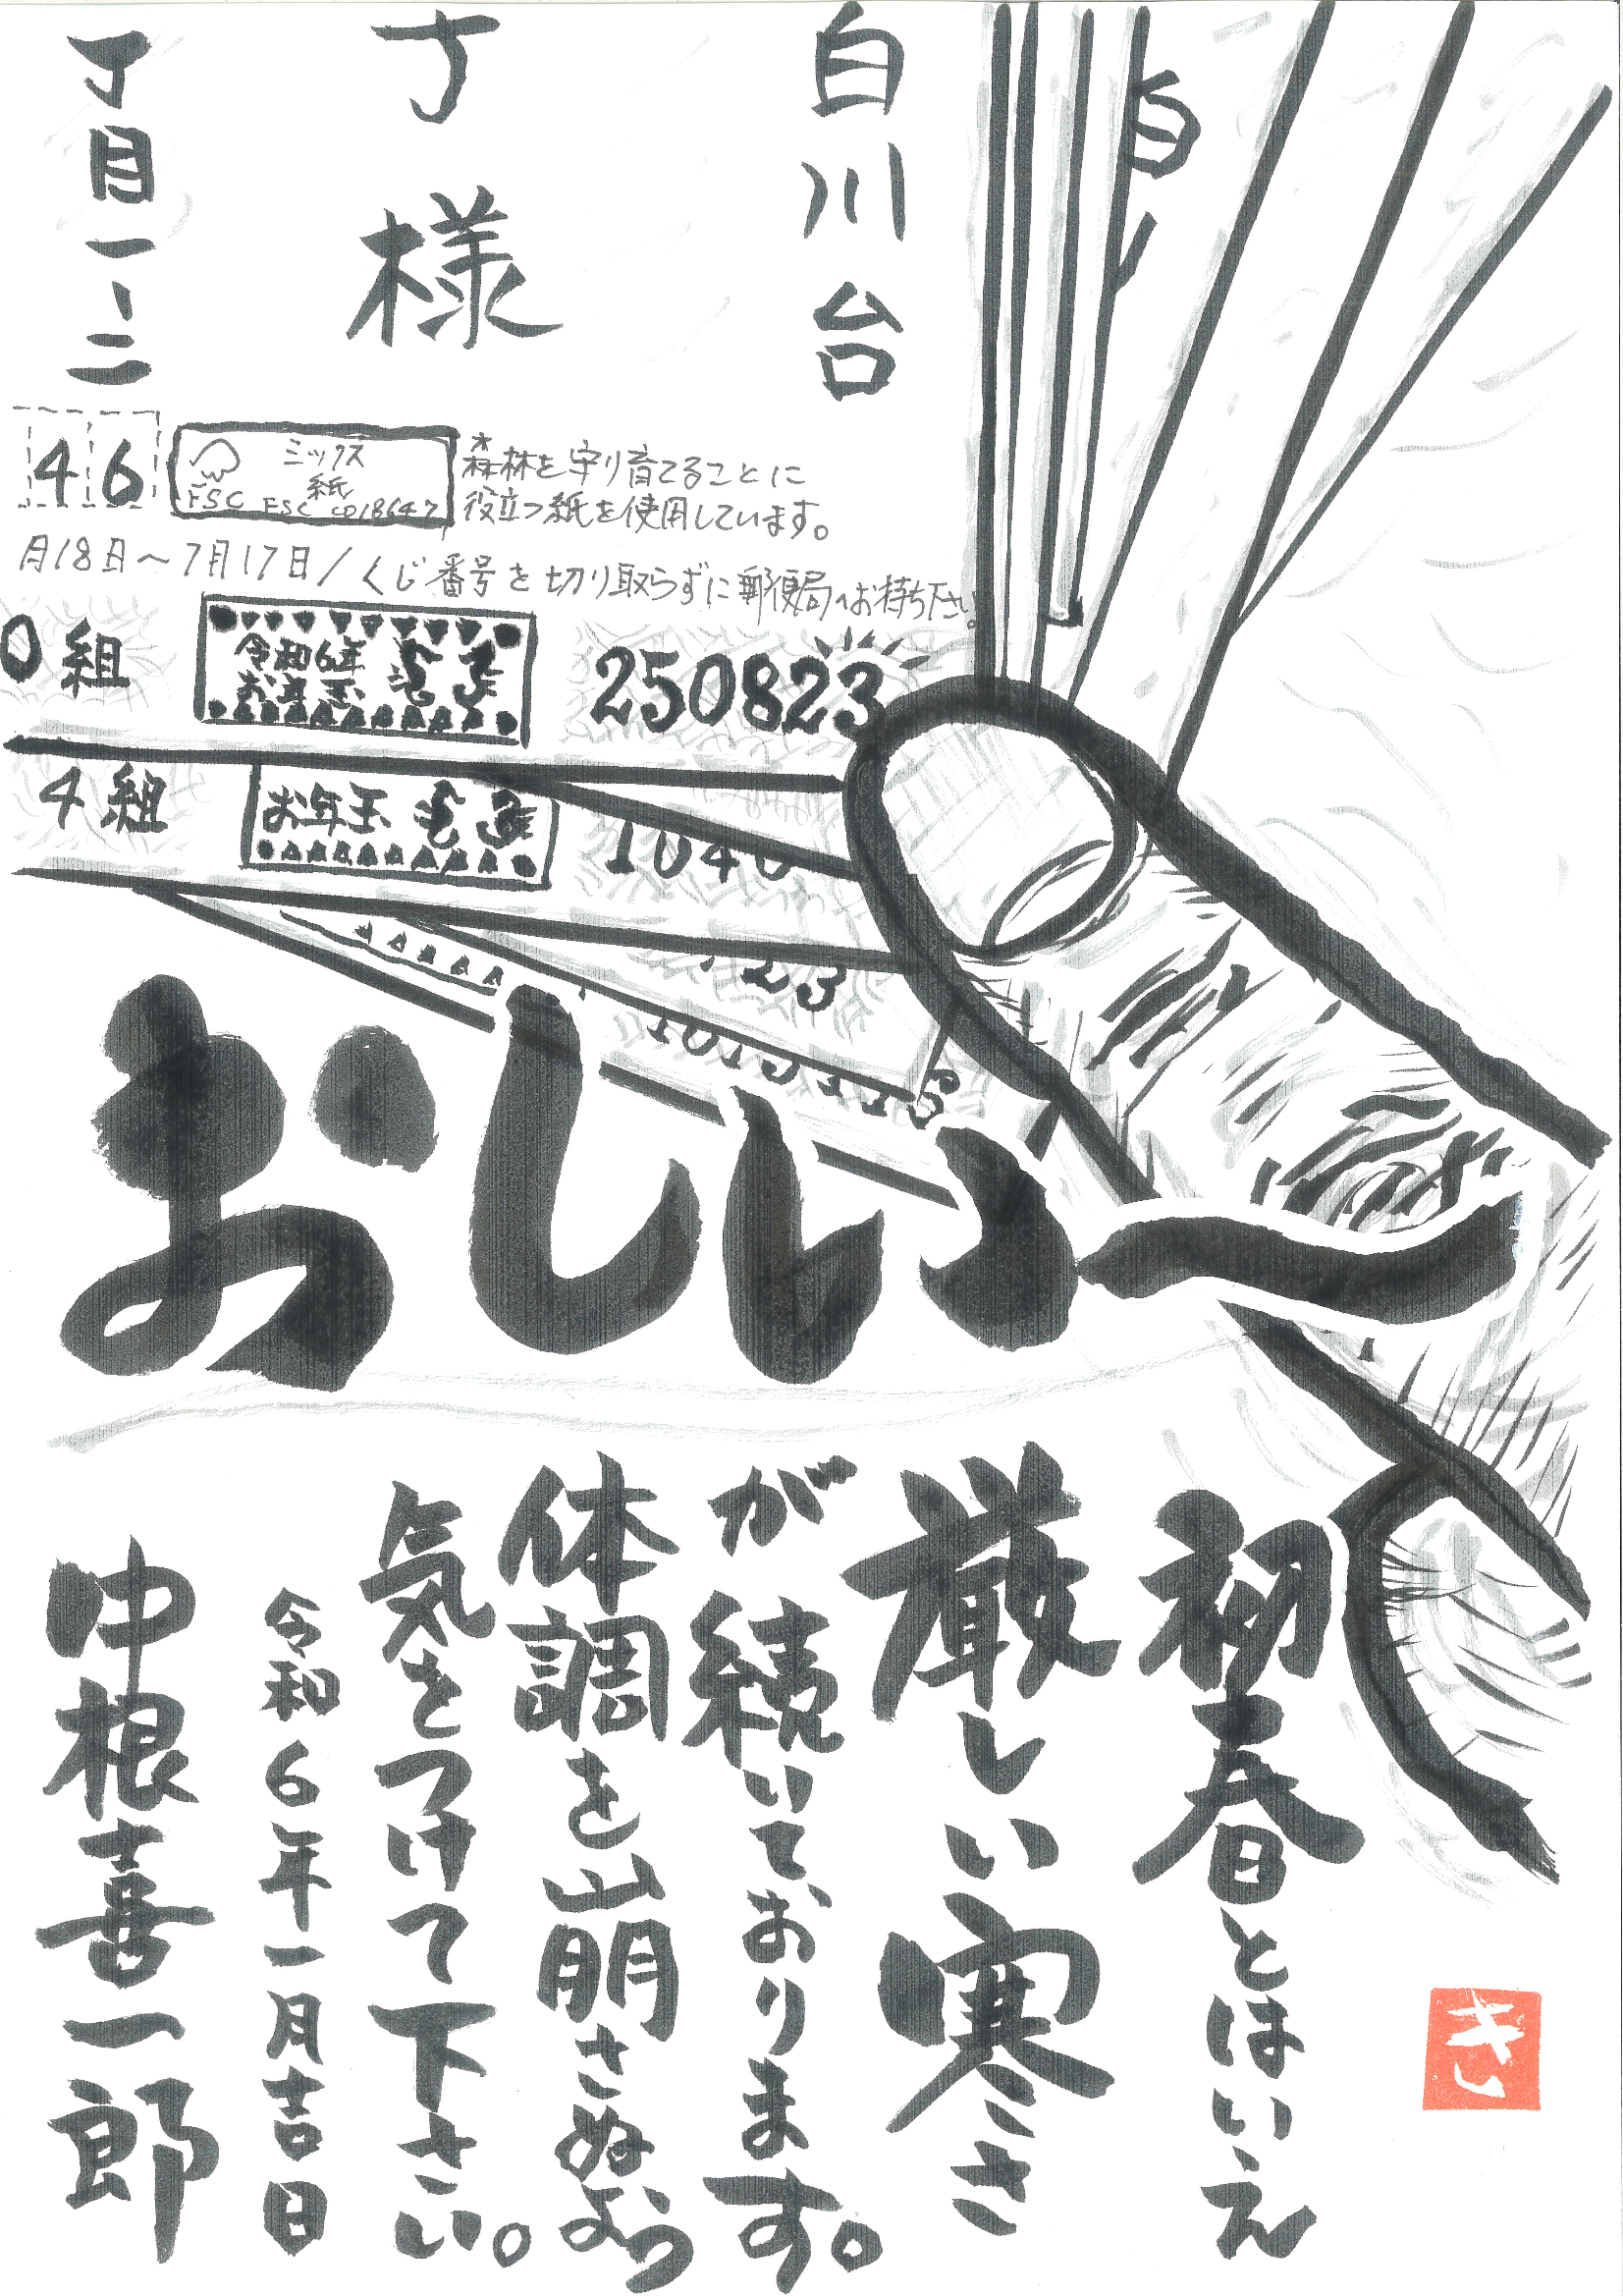 白川台
寸様
丁目一、二
白
46
ミックス
紙
FSC FSC C018647
森林を守り育てることに
役立つ紙を使用しています。
月18日～7月17日/くじ番号を切り取らずに郵便局へお持ち下さい。
0組
令和6年
お年玉
250823
4組
お年玉
1040
23
おしい～
初春とはいえ
厳しい寒さ
が続いております。
体調を崩さぬよう
気をつけて下さい。
令和6年一月吉日
中根喜一郎
き